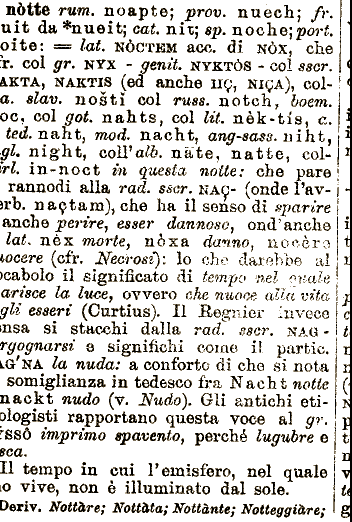 nòtte rum. noapte; prov. nuech; fr.
uit da *nueit; cat. nit; sp. noche; port.
oite: = lat. NÒCTEM acc. di NÒX, che
fr. col gr. NYX - genit. NYKTÒS - col sscr.
AKTA, NAKTIS (ed anche NIÇ, NIÇA), col-
a. slav. nošti col russ. notch, boem.
oc, col got. nahts, col lit. nèk-tis, c.
ted. naht, mod. nacht, ang-sass. niht,
gl. night, coll'alb. nâte, natte, col-
irl. in-noct in questa notte: che pare
rannodi alla rad. sscr. NAÇ- (onde l'av-
erb. naçtam), che ha il senso di sparire
anche perire, esser dannoso, ond'anche
lat. nèx morte, nòxa danno, nocère
nuocere (cfr. Necrosi): lo che darebbe al
ocabolo il significato di tempo nel quale
arisce la luce, ovvero che nuoce alla vita
gli esseri (Curtius). Il Regnier invece
ensa si stacchi dalla rad. sscr. NAG-
ergognarsi e significhi come il partic.
AG'NA la nuda: a conforto di che si nota
somiglianza in tedesco fra Nacht notte
nackt nudo (v. Nudo). Gli antichi eti-
ologisti rapportano questa voce al gr.
YSSÔ imprimo spavento, perché lugubre e
sca.
Il tempo in cui l'emisfero, nel quale
no vive, non è illuminato dal sole.
Deriv. Nottàre; Nottàta; Nottànte; Notteggiàre;